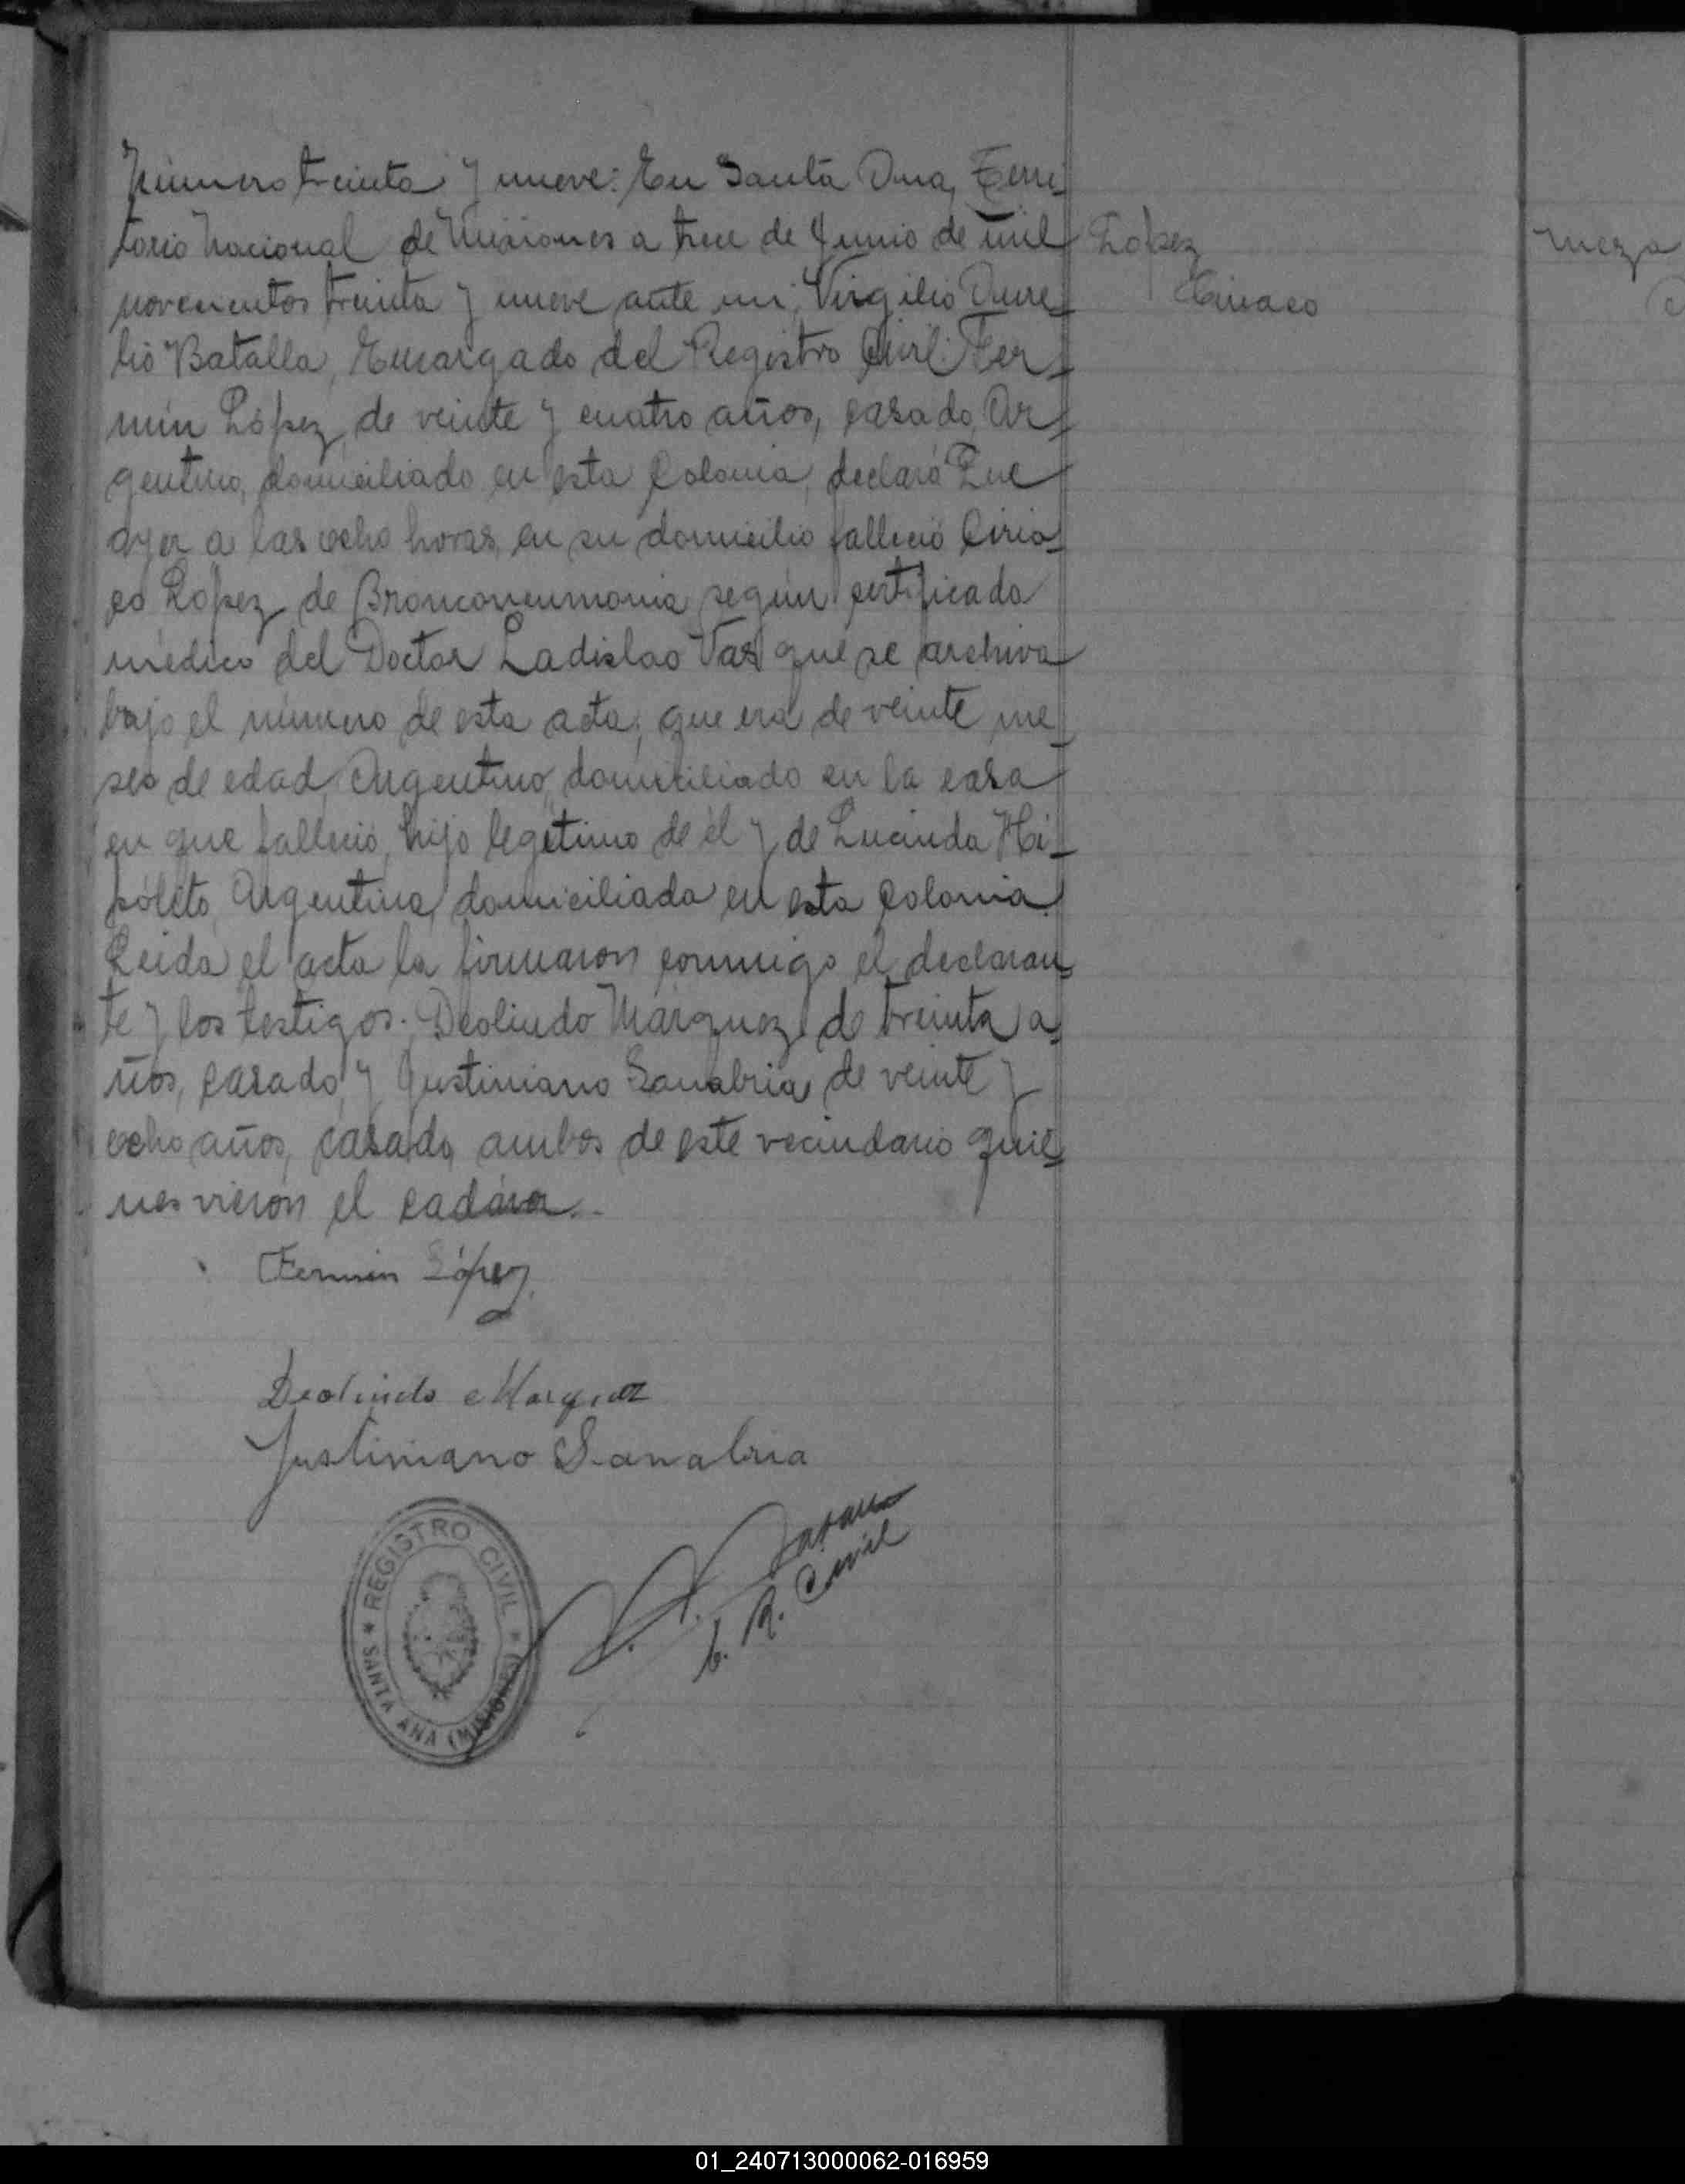 Número treinta y nueve: En Santa Ana, Terri-
torio Nacional de Misiones a trece de Junio de mil
novecientos treinta y nueve ante mi, Virgilio Aure-
lio Batalla, Encargado del Registro Civil: Fer-
mín López, de veinte y cuatro años, casado, Ar-
gentino, domiciliado en esta Colonia, declaró Que
ayer a las ocho horas, en su domicilio falleció Ciria-
co López, de Bronconeumonia según certificado
médico del Doctor Ladislao Vas que se archiva
bajo el número de esta acta; que era de veinte me-
ses de edad, Argentino, domiciliado en la casa
en que falleció, hijo legítimo de él y de Lucinda Hi-
pólito, Argentina, domiciliada en esta Colonia.
Leida el acta la firmaron conmigo el declaran-
te y los testigos: Deolindo Márquez, de treinta a-
ños, casado, y Justiniano Sanabria de veinte y
ocho años, casado, ambos de este vecindario quie-
nes vierón el cadáver.-
Fermin López
Deolindo Marquez
Justiniano Sanabria
E. R. Civil
REGISTRO CIVIL
SANTA ANA (MISIONES)
López
Ciriaco
Meza
01_240713000062-016959